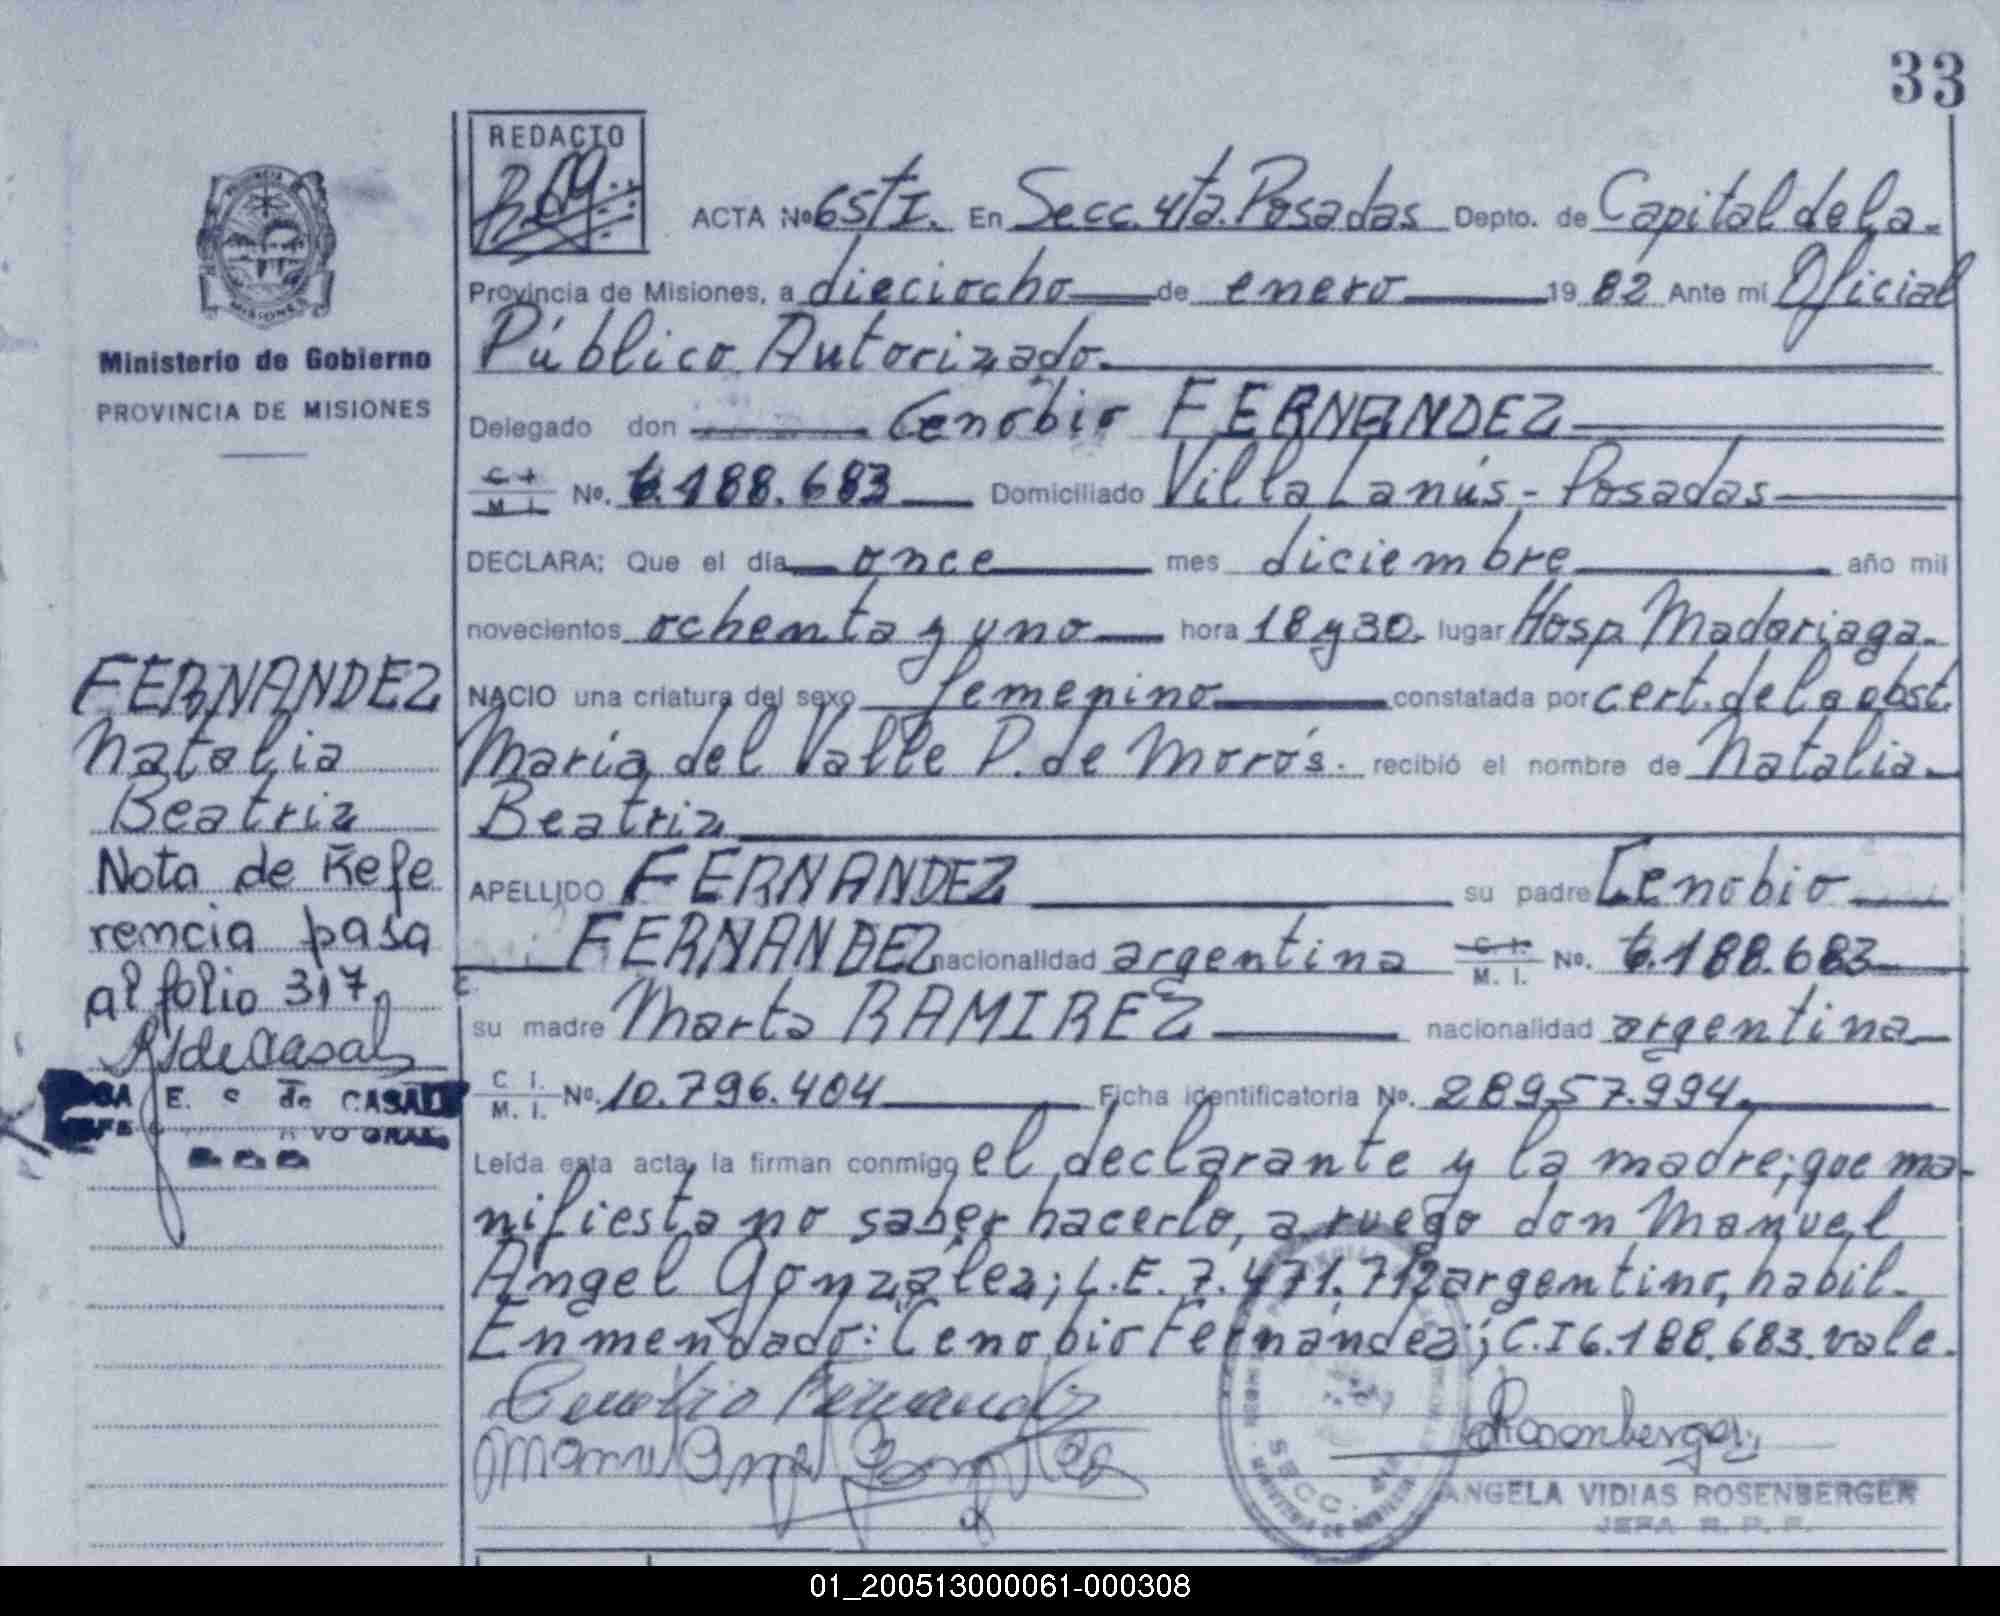 33
REDACTO
ACTA No 65 tI. En Secc. 4ta. Posadas Depto. de Capital de la
Provincia de Misiones, a dieciocho de enero 1982 Ante mi Oficial
Público Autorizado.
Delegado don Cenobio FERNANDEZ
C I M. I. No. 6.188.683 Domiciliado Villa Lanús - Posadas
DECLARA: Que el día once mes diciembre año mil
novecientos ochenta y uno hora 18 y 30. lugar Hosp. Madariaga.
NACIO una criatura del sexo femenino constatada por cert. de la obst.
María del Valle P. de Morós. recibió el nombre de Natalia
Beatriz
APELLIDO FERNANDEZ su padre Cenobio
FERNANDEZ nacionalidad argentina C. I. M. I. No. 6.188.683
su madre Marta RAMIREZ nacionalidad argentina
C I. M. I. No. 10.796.404 Ficha identificatoria No. 28957.994
Leída esta acta, la firman conmigo el declarante y la madre; que ma-
nifiesta no saber hacerlo, a ruego don Manuel
Angel González; L.E. 7.471.712 argentino, habil.
Enmendado: "Cenobio Fernández"; C.I 6.188.683. vale.
Cenobio Fernandez
Manuel Angel Gonzalez
Rosenberger
ANGELA VIDIAS ROSENBERGER
JEFA R. P. F.
SECC.
PROVINCIA DE MISIONES
Ministerio de Gobierno
PROVINCIA DE MISIONES
FERNANDEZ
Natalia
Beatriz
Nota de Refe
rencia pasa
al folio 317
de Casal
E. de CASAL
01_200513000061-000308